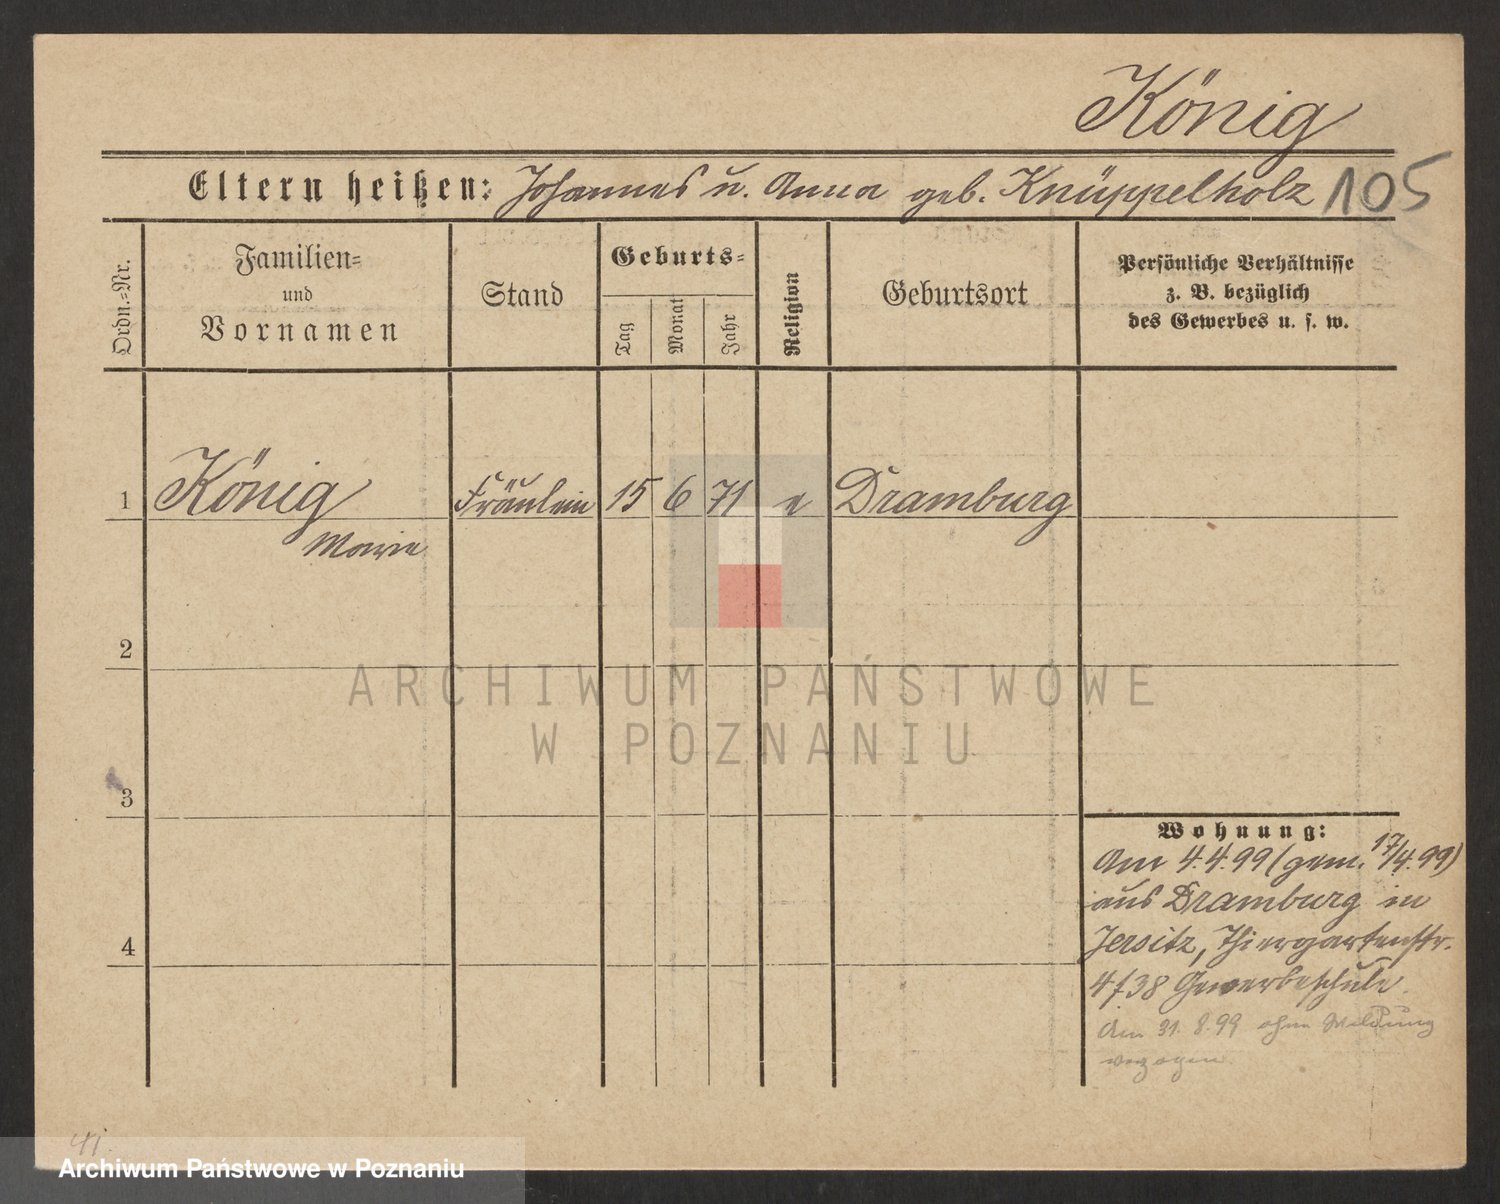 König
Eltern heißen: Johannes u. Anna geb. Knüppelholz 105
Ordn.=Nr.
Familien=
und
Vornamen
Stand
Geburts=
Tag
Monat
Jahr
Religion
Geburtsort
Persönliche Verhältnisse
z. B. bezüglich
des Gewerbes u. s. w.
1 König Fräulein 15 6 71 e Dramburg
Marie
2
ARCHIWUM PAŃSTWOWE
W POZNANIU
3
Wohnung:
Am 4.4.99 (gem. 17/4.99)
aus Dramburg in
Jersitz, Thiergartenstr.
4/38 Gewerbeschule.
Am 31.8.99 ohne Meldung
verzogen.
4
Archiwum Państwowe w Poznaniu